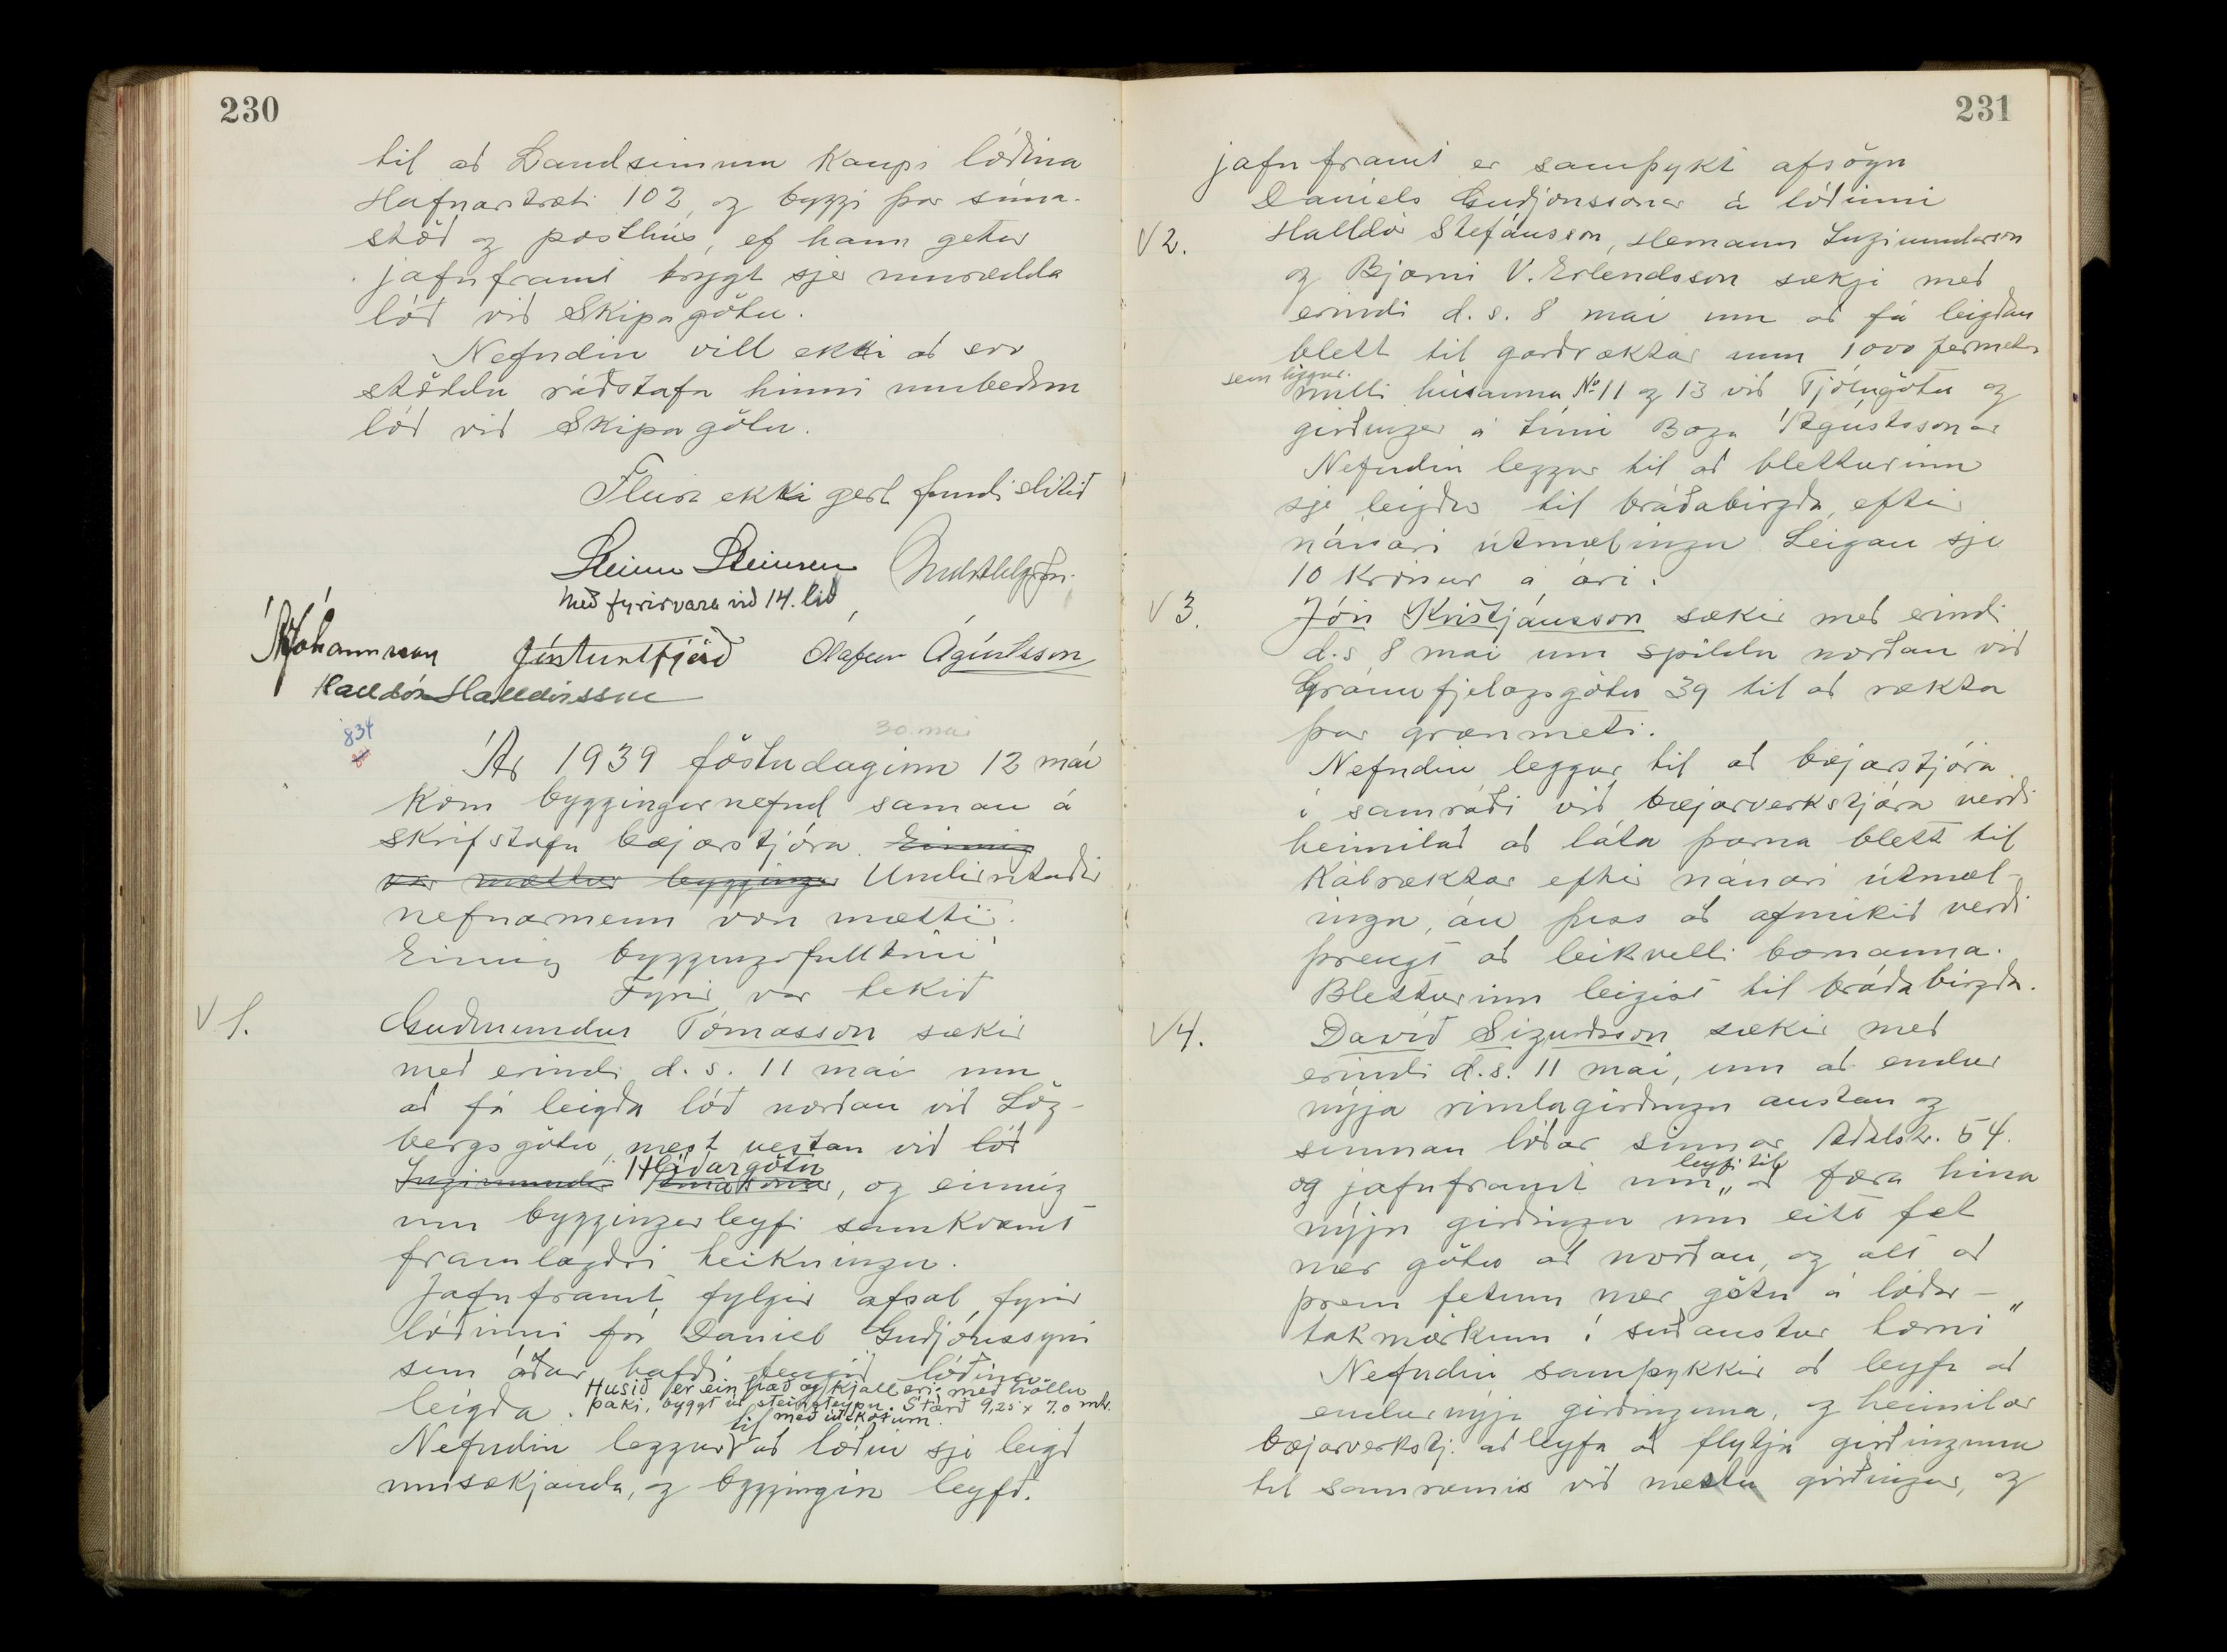 230
til að Landsíminn Kaupi lóðina
Hafnarstræti 102, og byggi þar síma-
stöð og pósthús, ef hann getur
jafnframt trygt sje umrædda
lóð við Skipagötu.
Nefndin vill ekki að svo
stöddu ráðstafa hinni umbeðnu
lóð við Skipagötu.
Fleira ekki gert fundi slitið
Steinn Steinsen
með fyrirvara við 14. lið
Ólafur Ágústsson
Halldór Halldórsson
834
30. mai
Ár 1939 föstudaginn 12 mái
Kom byggingarnefnd saman á
skrifstofu bæjarstjóra. Einnig
var mættur bygginga Undirritaðir
nefnarmenn voru mættir.
Einnig byggingafulltrúi
Fyrir var tekið
V 1.
Guðmundur Tómasson sækir
með erindi d.s. 11 mai um
að fá leigða lóð norðan við Lög-
bergsgötu, næst vestan við lóð
Ingimundar Árnasonar, og einnig
Hlíðargötu
um byggingarleyfi samkvæmt
framlagðri teikningu.
Jafnframt fylgir afsal fyrir
lóðinni frá Daniel Guðjónssyni
sem áður hafði fengið lóðina
leigða.
Húsið er ein hæð og kjallari með höllu
þaki, byggt úr steinsteypu. Stærð 9,25 x 7,0 mtr.
með útskotum.
Nefndin leggur til að lóðin sje leigð
umsækjanda, og byggingin leyfð.
231
jafnframt er samþykt afsögn
Daníels Guðjónssonar á lóðinni
V 2.
Halldór Stefánsson, Hermann Ingimundarson
og Bjarni V. Erlendsson sækji með
erindi d.s. 8 mai um að fá leigðan
blett til garðræktar um 1000 fermetra
sem liggur
milli húsanna No 11 og 13 við Fjólugötu og
girðingar á túni Boga Ágústssonar
Nefndin leggur til að bletturinn
sje leigður til bráðabirgða, eftir
nánari útmælingu. Leigan sje
10 krónur á ári.
V 3.
Jón Kristjánsson sækir með erindi
d.s 8 mai um spildu norðan við
Gránufjelagsgötu 39 til að rækta
þar grænmeti.
Nefndin leggur til að bæjarstjóra
í samráði við bæjarverkstjóra verði
heimilað að láta þarna blett til
Kálræktar eftir nánari útmæl-
ingu, án þess að afmikið verði
þrengt að leikvelli barnanna.
Bletturinn leigist til bráðabirgða.
V 4.
Davíð Sigurðsson sækir með
erindi d.s. 11 mai, um að endur
nýja rimlagirðingu austan og
sunnan lóðar sinnar Aðalstr. 54.
og jafnframt um „ leyfi til að færa hina
nýju girðingu um eitt fet
nær götu að norðan, og alt að
þrem fetum nær götu á lóðar-
takmörkum í suðaustur horni"
Nefndin samþykkir að leyfa að
endurnýja girðinguna, og heimilar
bæjarverkstj. að leyfa að flytja girðinguna
til samræmis við næstu girðingar, og